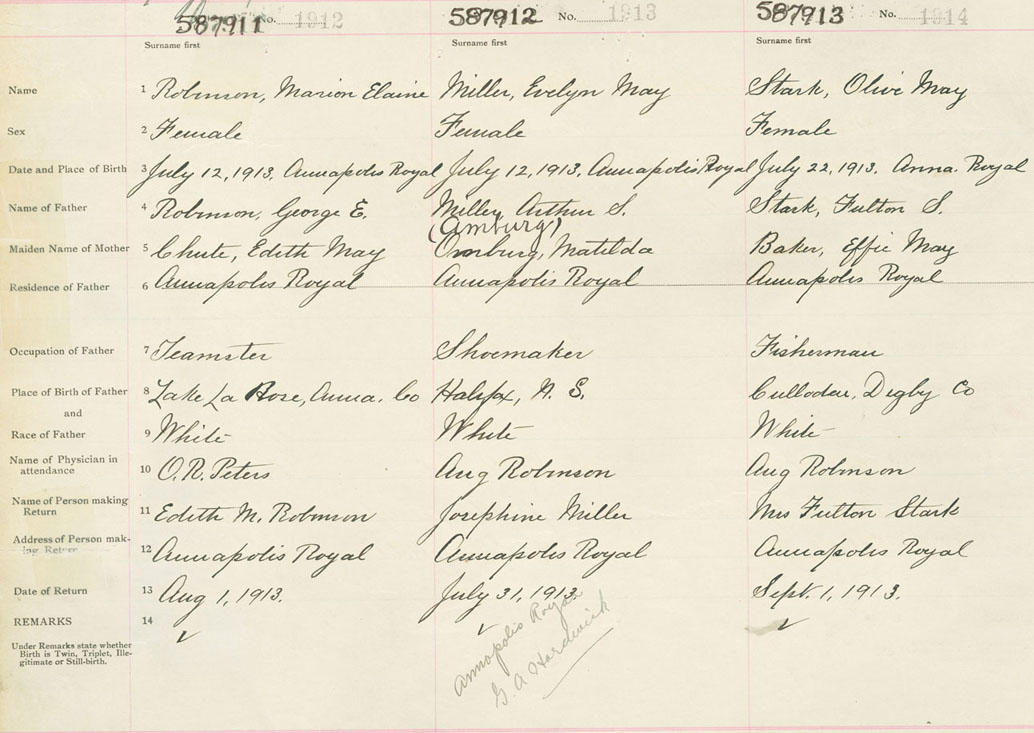 587911 No. 1912 587912 No. 1913 587913 No. 1914
Surname first Surname first Surname first
Name 1 Robinson, Marion Elaine Miller, Evelyn May Stark, Olive May
Sex 2 Female Female Female
Date and Place of Birth 3 July 12, 1913, Annapolis Royal July 12, 1913, Annapolis Royal July 22, 1913. Anna. Royal
Name of Father 4 Robinson, George E. Miller, Arthur S. Stark, Fulton S.
(Amburg)
Maiden Name of Mother 5 Chute, Edith May Omburg, Matilda Baker, Effie May
Residence of Father 6 Annapolis Royal Annapolis Royal Annapolis Royal
Occupation of Father 7 Teamster Shoemaker Fisherman
Place of Birth of Father 8 Lake La Rose, Anna. Co Halifax, N. S. Culloden, Digby Co
and
Race of Father 9 White White White
Name of Physician in
attendance 10 O. R. Peters Aug Robinson Aug Robinson
Name of Person making
Return 11 Edith M. Robinson Josephine Miller Mrs Fulton Stark
Address of Person mak-
ing Return 12 Annapolis Royal Annapolis Royal Annapolis Royal
Date of Return 13 Aug 1, 1913. July 31, 1913. Sept. 1, 1913.
REMARKS 14
Under Remarks state whether
Birth is Twin, Triplet, Ille-
gitimate or Still-birth.
Annapolis Royal
G. A Hardwick